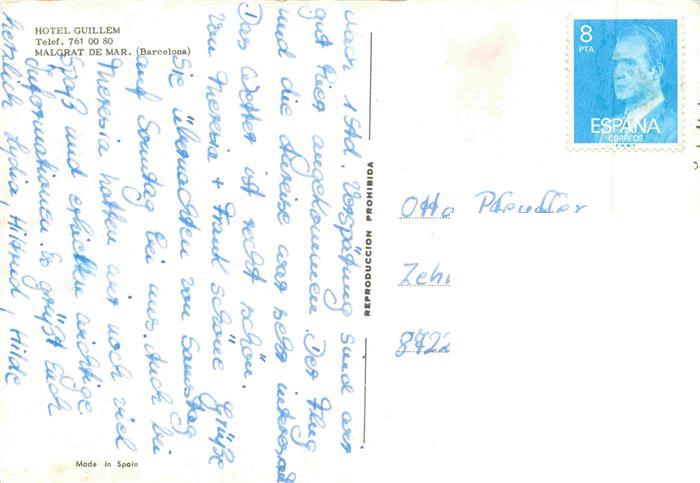 HOTEL GUILLEM
Telef. 761 00 80
MALGRAT DE MAR. (Barcelona)
Nach 1 Std. Verspätung sind wir
gut hier angekommen. Der Flug
und die Anreise war sehr interess.
Das Wetter ist recht schön.
Von Theresia + Frank schöne Grüße
Sie übernachten von Samstag
auf Sonntag bei uns. Auch bei
Theresia hatten wir noch viel
Spaß und erhielten wichtige
Informationen. Es grüßt Euch
herzlich Lydia, Hiltrud, Hilde
Made in Spain
REPRODUCCION PROHIBIDA
8
PTA
ESPAÑA
CORREOS
Otto
Zehn
8722